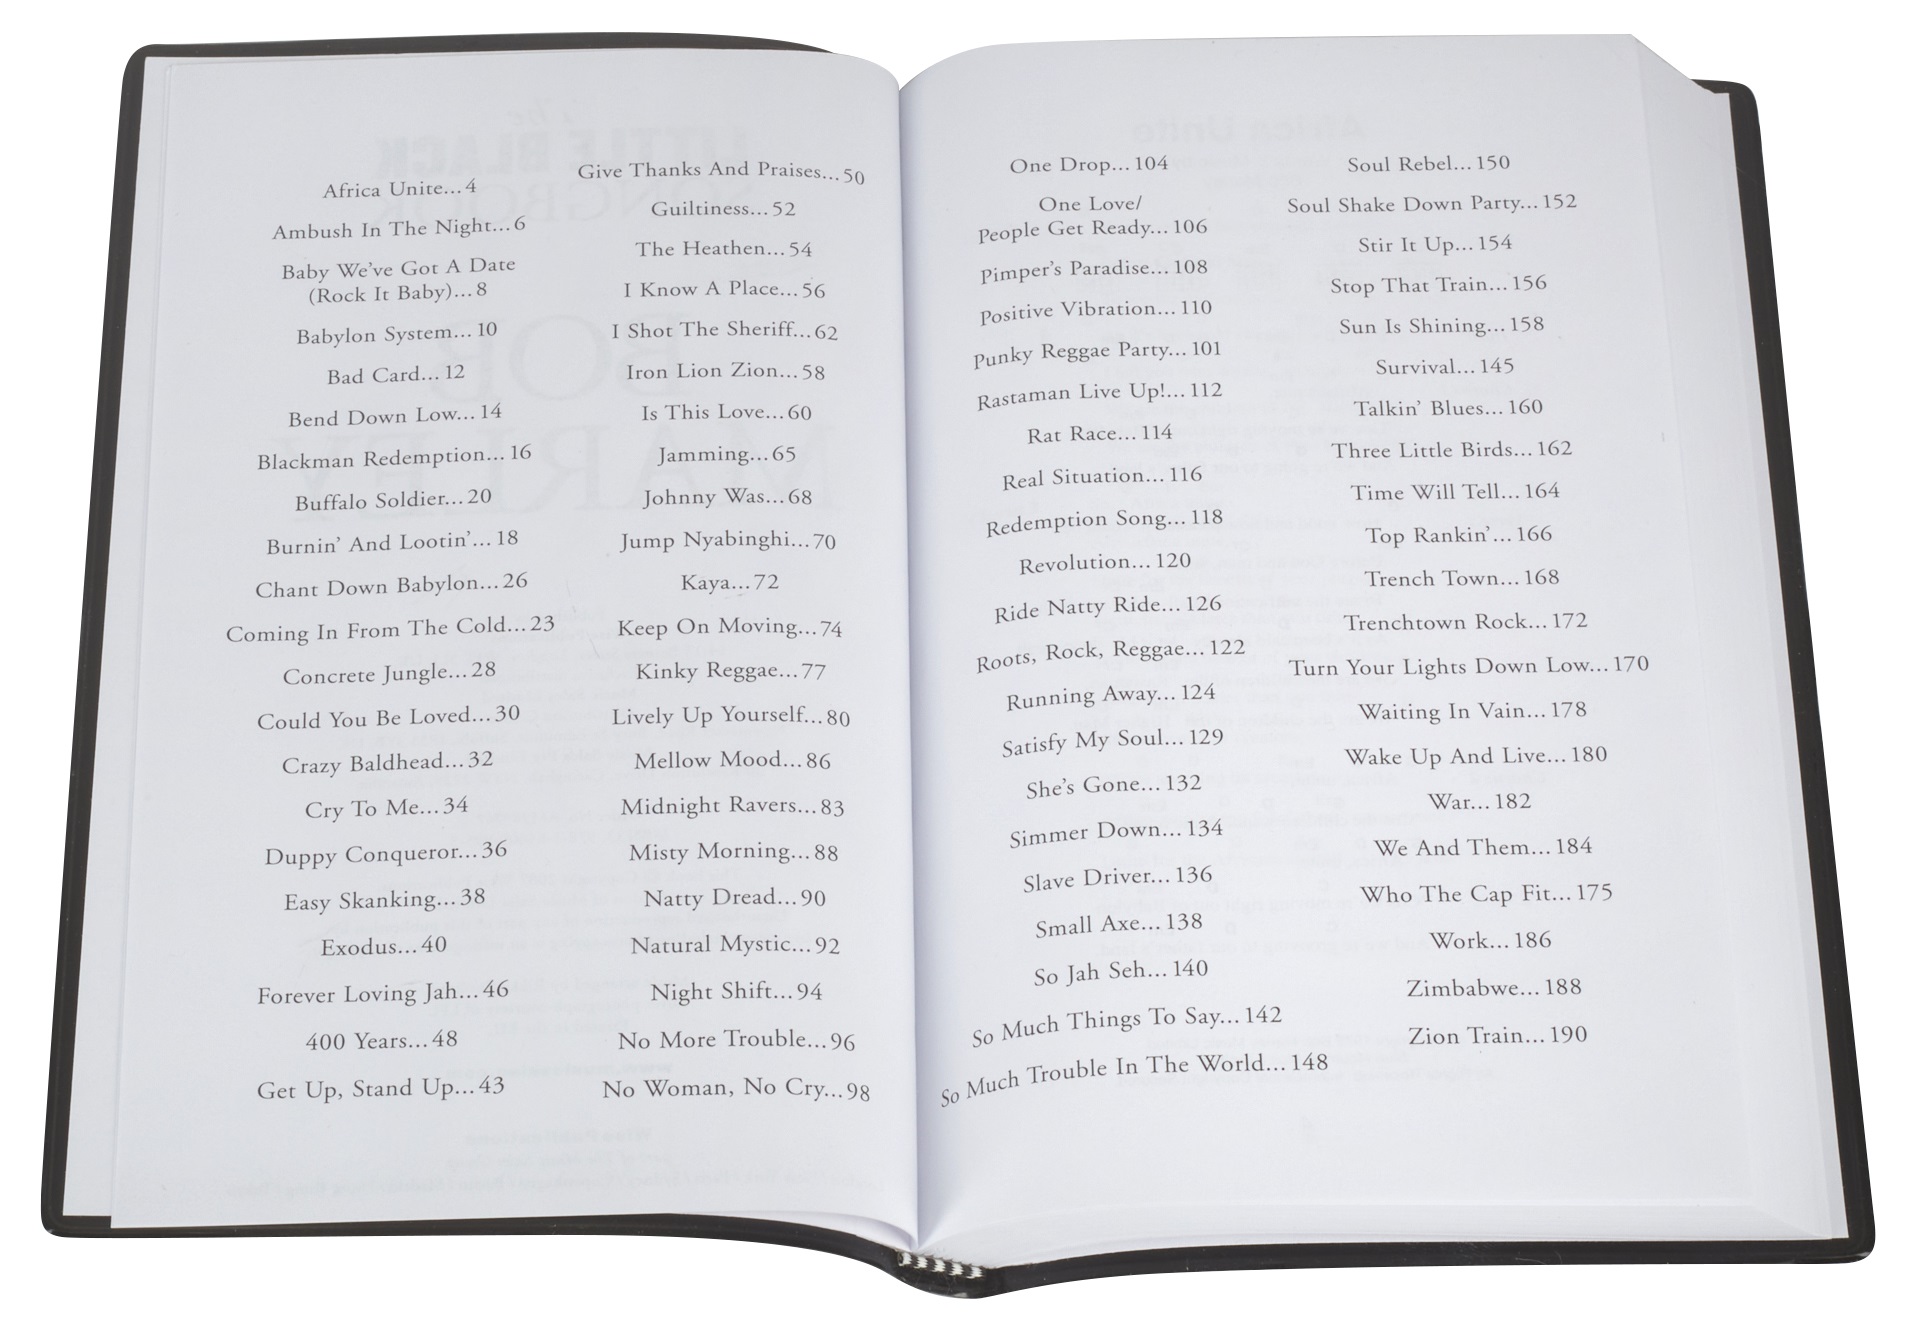 Africa Unite...4
Ambush In The Night...6
Baby We've Got A Date
(Rock It Baby)...8
Babylon System...10
Bad Card...12
Bend Down Low...14
Blackman Redemption...16
Buffalo Soldier...20
Burnin' And Lootin'...18
Chant Down Babylon...26
Coming In From The Cold...23
Concrete Jungle...28
Could You Be Loved...30
Crazy Baldhead...32
Cry To Me...34
Duppy Conqueror...36
Easy Skanking...38
Exodus...40
Forever Loving Jah...46
400 Years...48
Get Up, Stand Up...43
Give Thanks And Praises...50
Guiltiness...52
The Heathen...54
I Know A Place...56
I Shot The Sheriff...62
Iron Lion Zion...58
Is This Love...60
Jamming...65
Johnny Was...68
Jump Nyabinghi...70
Kaya...72
Keep On Moving...74
Kinky Reggae...77
Lively Up Yourself...80
Mellow Mood...86
Midnight Ravers...83
Misty Morning...88
Natty Dread...90
Natural Mystic...92
Night Shift...94
No More Trouble...96
No Woman, No Cry...98
One Drop...104
One Love/
People Get Ready...106
Pimper's Paradise...108
Positive Vibration...110
Punky Reggae Party...101
Rastaman Live Up!...112
Rat Race...114
Real Situation...116
Redemption Song...118
Revolution...120
Ride Natty Ride...126
Roots, Rock, Reggae...122
Running Away...124
Satisfy My Soul...129
She's Gone...132
Simmer Down...134
Slave Driver...136
Small Axe...138
So Jah Seh...140
So Much Things To Say...142
So Much Trouble In The World...148
Soul Rebel...150
Soul Shake Down Party...152
Stir It Up...154
Stop That Train...156
Sun Is Shining...158
Survival...145
Talkin' Blues...160
Three Little Birds...162
Time Will Tell...164
Top Rankin'...166
Trench Town...168
Trenchtown Rock...172
Turn Your Lights Down Low...170
Waiting In Vain...178
Wake Up And Live...180
War...182
We And Them...184
Who The Cap Fit...175
Work...186
Zimbabwe...188
Zion Train...190